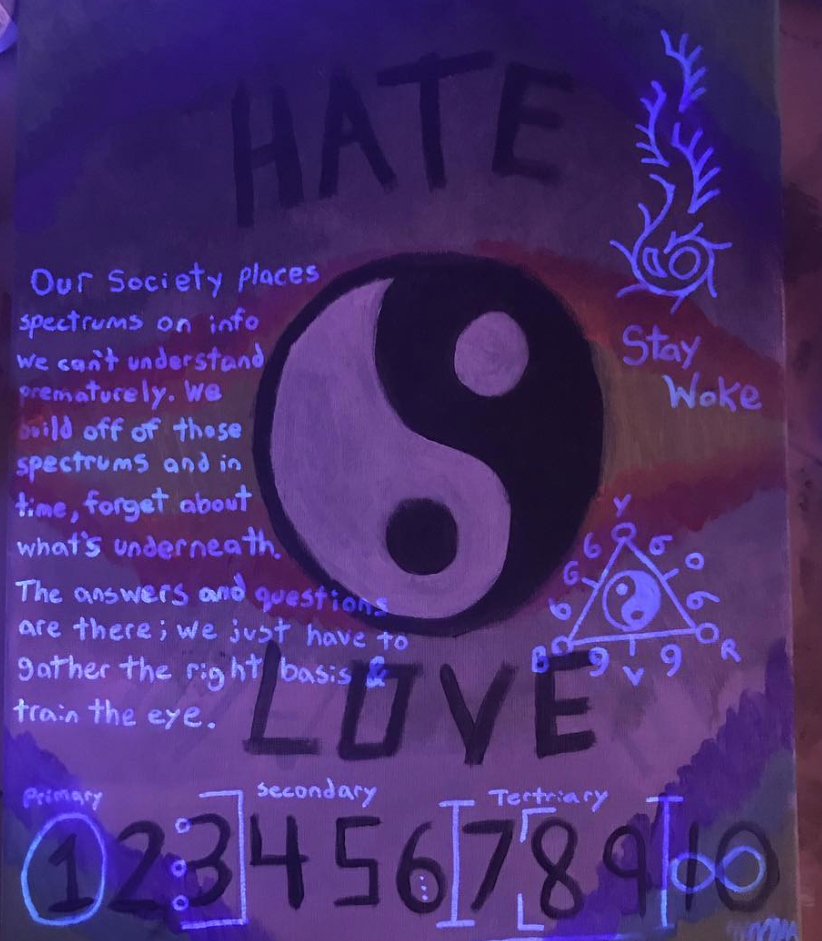 HATE
Our Society places
spectrums on info
we can't understand
prematurely. We
build off of those
spectrums and in
time, forget about
what's underneath.
The answers and questions
are there; we just have to
gather the right basis &
train the eye.
Stay
Woke
Y
6 6
G O
6 6
B R
9 V 9
LOVE
Primary secondary Tertriary
1 2 3 4 5 6 7 8 9 10